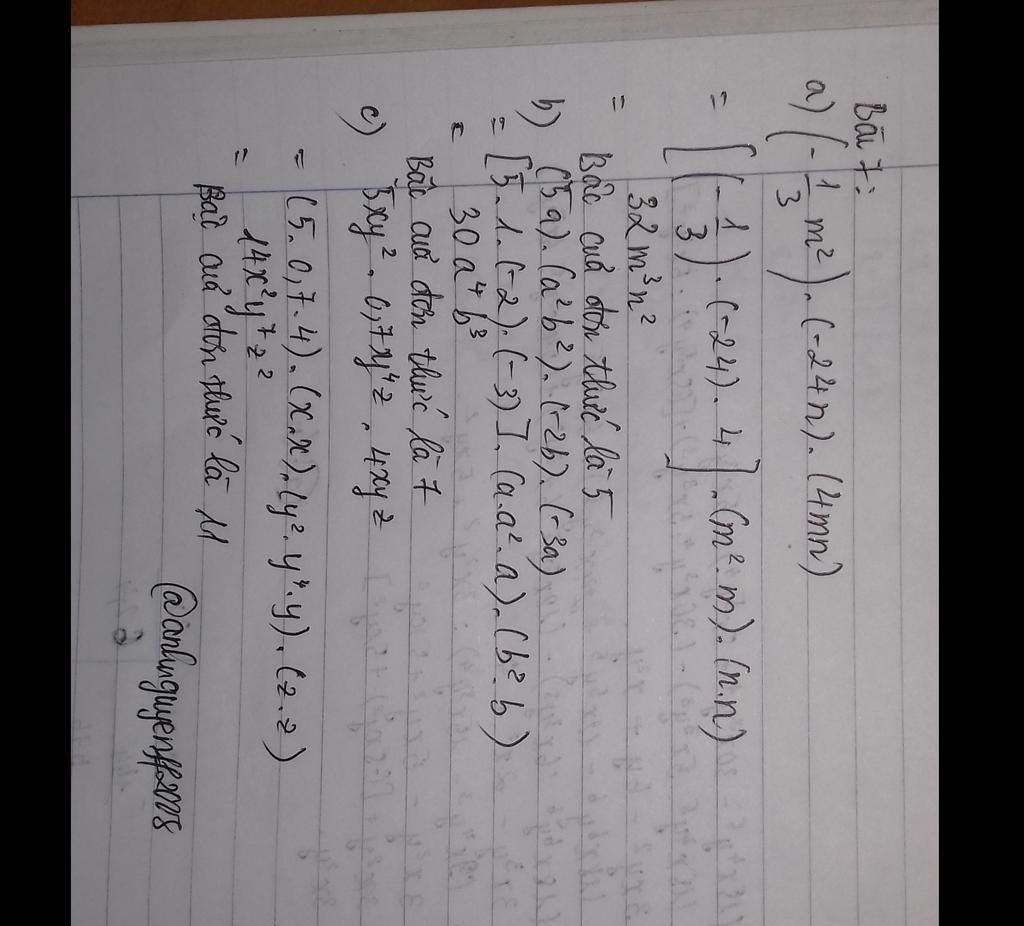 Bài 7:
a) (-1/3 m²).(-24n).(4mn)
= [(-1/3).(-24).4].(m².m).(n.n)
= 32m³n²
Bâc cuả đơn thức là 5
b) (5a).(a²b²).(-2b).(-3a)
= [5.1.(-2).(-3)].(a.a².a).(b².b)
= 30a⁴b³
Bâc cuả đơn thức là 7
c) 5xy².0,7xy⁴z.4xyz
= (5.0,7.4).(x.x).(y².y⁴.y).(z.z)
= 14x²y⁷z²
Bậc cuả đơn thức là 11